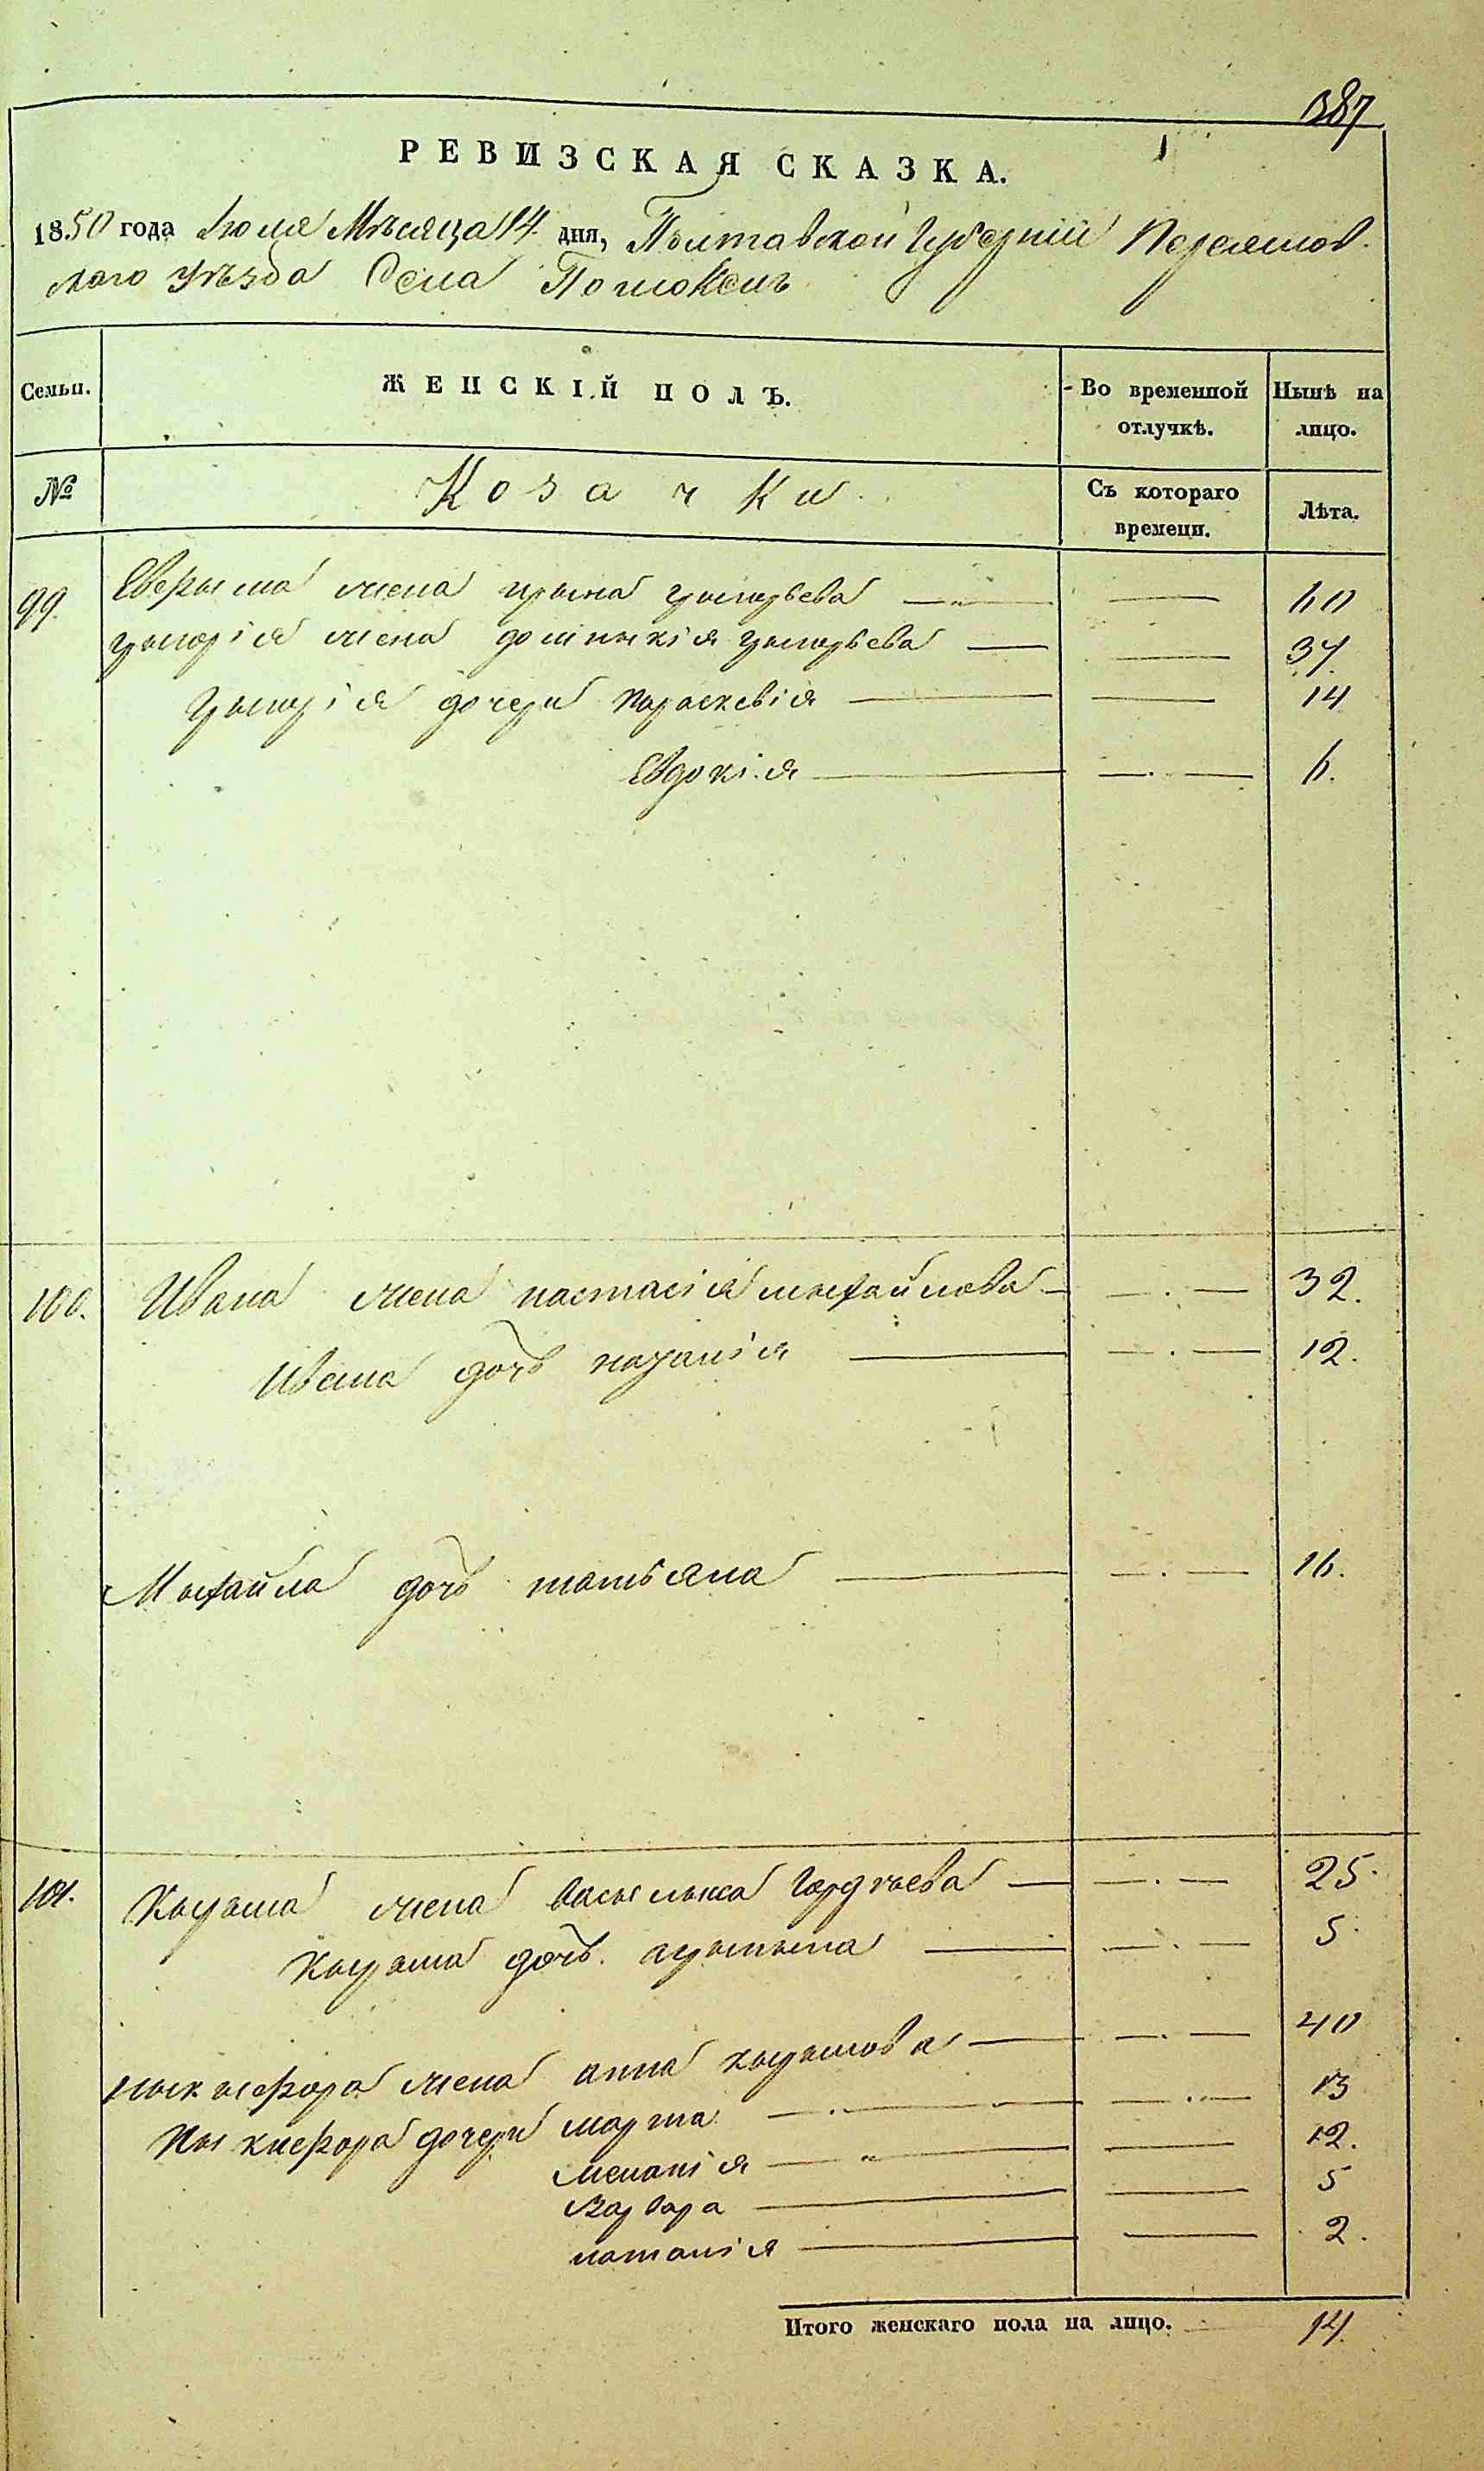 387
РЕВИЗСКАЯ СКАЗКА.
1850 года Июля Мѣсяца 14 дня, Полтавской Губерніи Переяслов-
скаго уѣзда Села Помоклеи
Семьи. ЖЕНСКІЙ ПОЛЪ. Во временной отлучкѣ. Нынѣ на лицо.
№ Козачки Съ котораго времени. Лѣта.
99. жена ирина григорьева — — 60
григорія жена домникія григорьева — — 37
григорія дочери параскевія — — 14
Евдокія — — 6.
100. Ивана жена настасія михайлова — — 32.
Ивана дочь — — 12.
Михайла дочь татьяна — — 16.
101. Кирила жена василиса Гордѣева — — 25
Кирила дочь — — 5
никифора жена анна кирилова — — 40
никифора дочери марта — — 13
меланія — — 12.
Варвара — — 5
наталія — — 2.
Итого женскаго пола на лицо. 14.